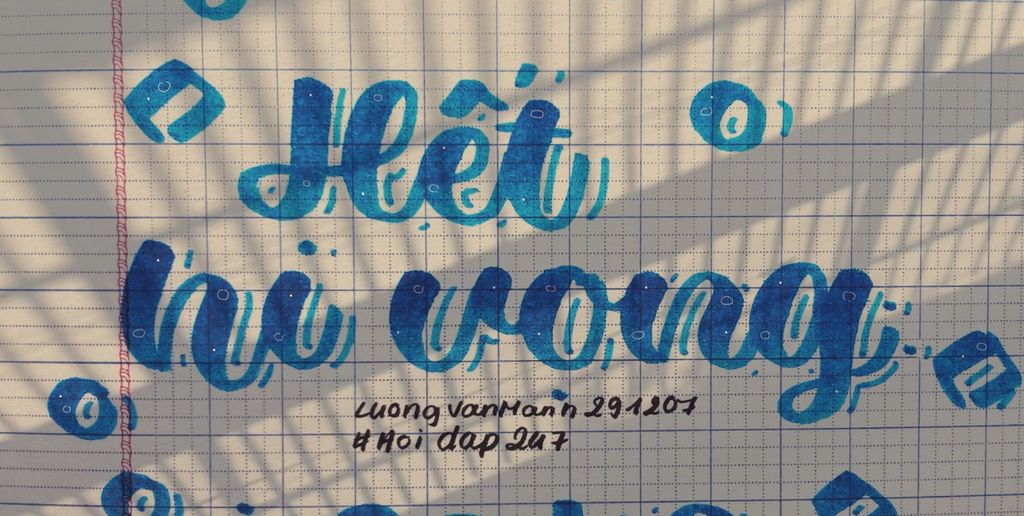 Hết
hi vọng
Luong VanMann 291207
# Hoi dap 247